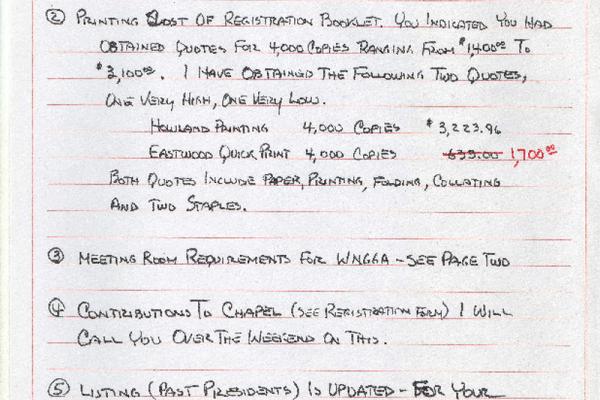 ② PRINTING COST OF REGISTRATION BOOKLET. YOU INDICATED YOU HAD
OBTAINED QUOTES FOR 4,000 COPIES RANGING FROM $1,400⁰⁰ TO
$3,100⁰⁰. I HAVE OBTAINED THE FOLLOWING TWO QUOTES,
ONE VERY HIGH, ONE VERY LOW.
HOWLAND PRINTING 4,000 COPIES $3,223.96
EASTWOOD QUICK PRINT 4,000 COPIES 639.00 1,700⁰⁰
BOTH QUOTES INCLUDE PAPER, PRINTING, FOLDING, COLLATING
AND TWO STAPLES.
③ MEETING ROOM REQUIREMENTS FOR WNGGA - SEE PAGE TWO
④ CONTRIBUTIONS TO CHAPEL (SEE REGISTRATION FORM) I WILL
CALL YOU OVER THE WEEKEND ON THIS.
⑤ LISTING (PAST PRESIDENTS) IS UPDATED - FOR YOUR